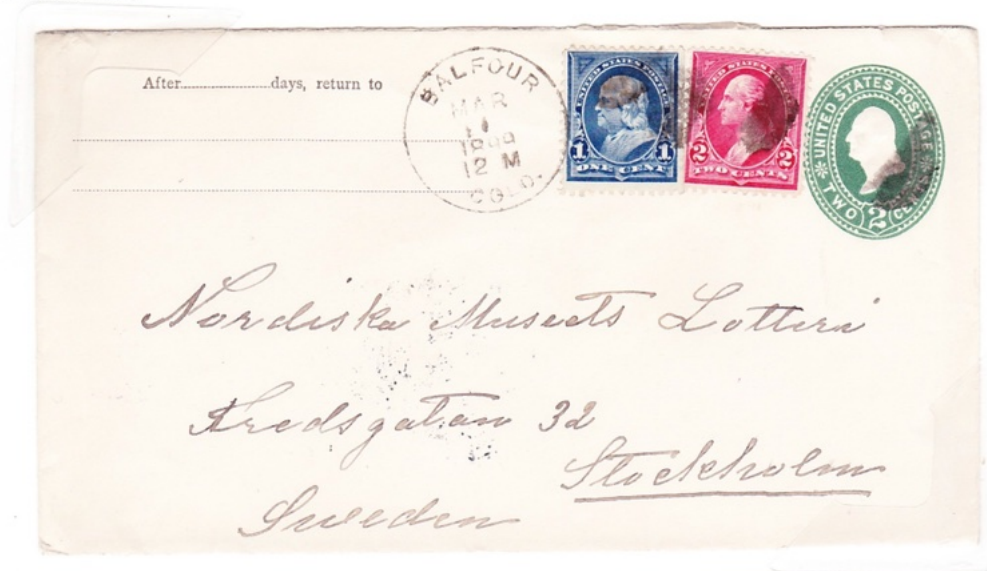 After..............days, return to
BALFOUR
MAR
1899
12 M
COLO.
UNITED STATES POSTAGE
1 1
ONE CENT
UNITED STATES POSTAGE
2 2
TWO CENTS
UNITED STATES POSTAGE
TWO 2
Nordiska Museets Lotteri
Fredsgatan 32
Stockholm
Sweden